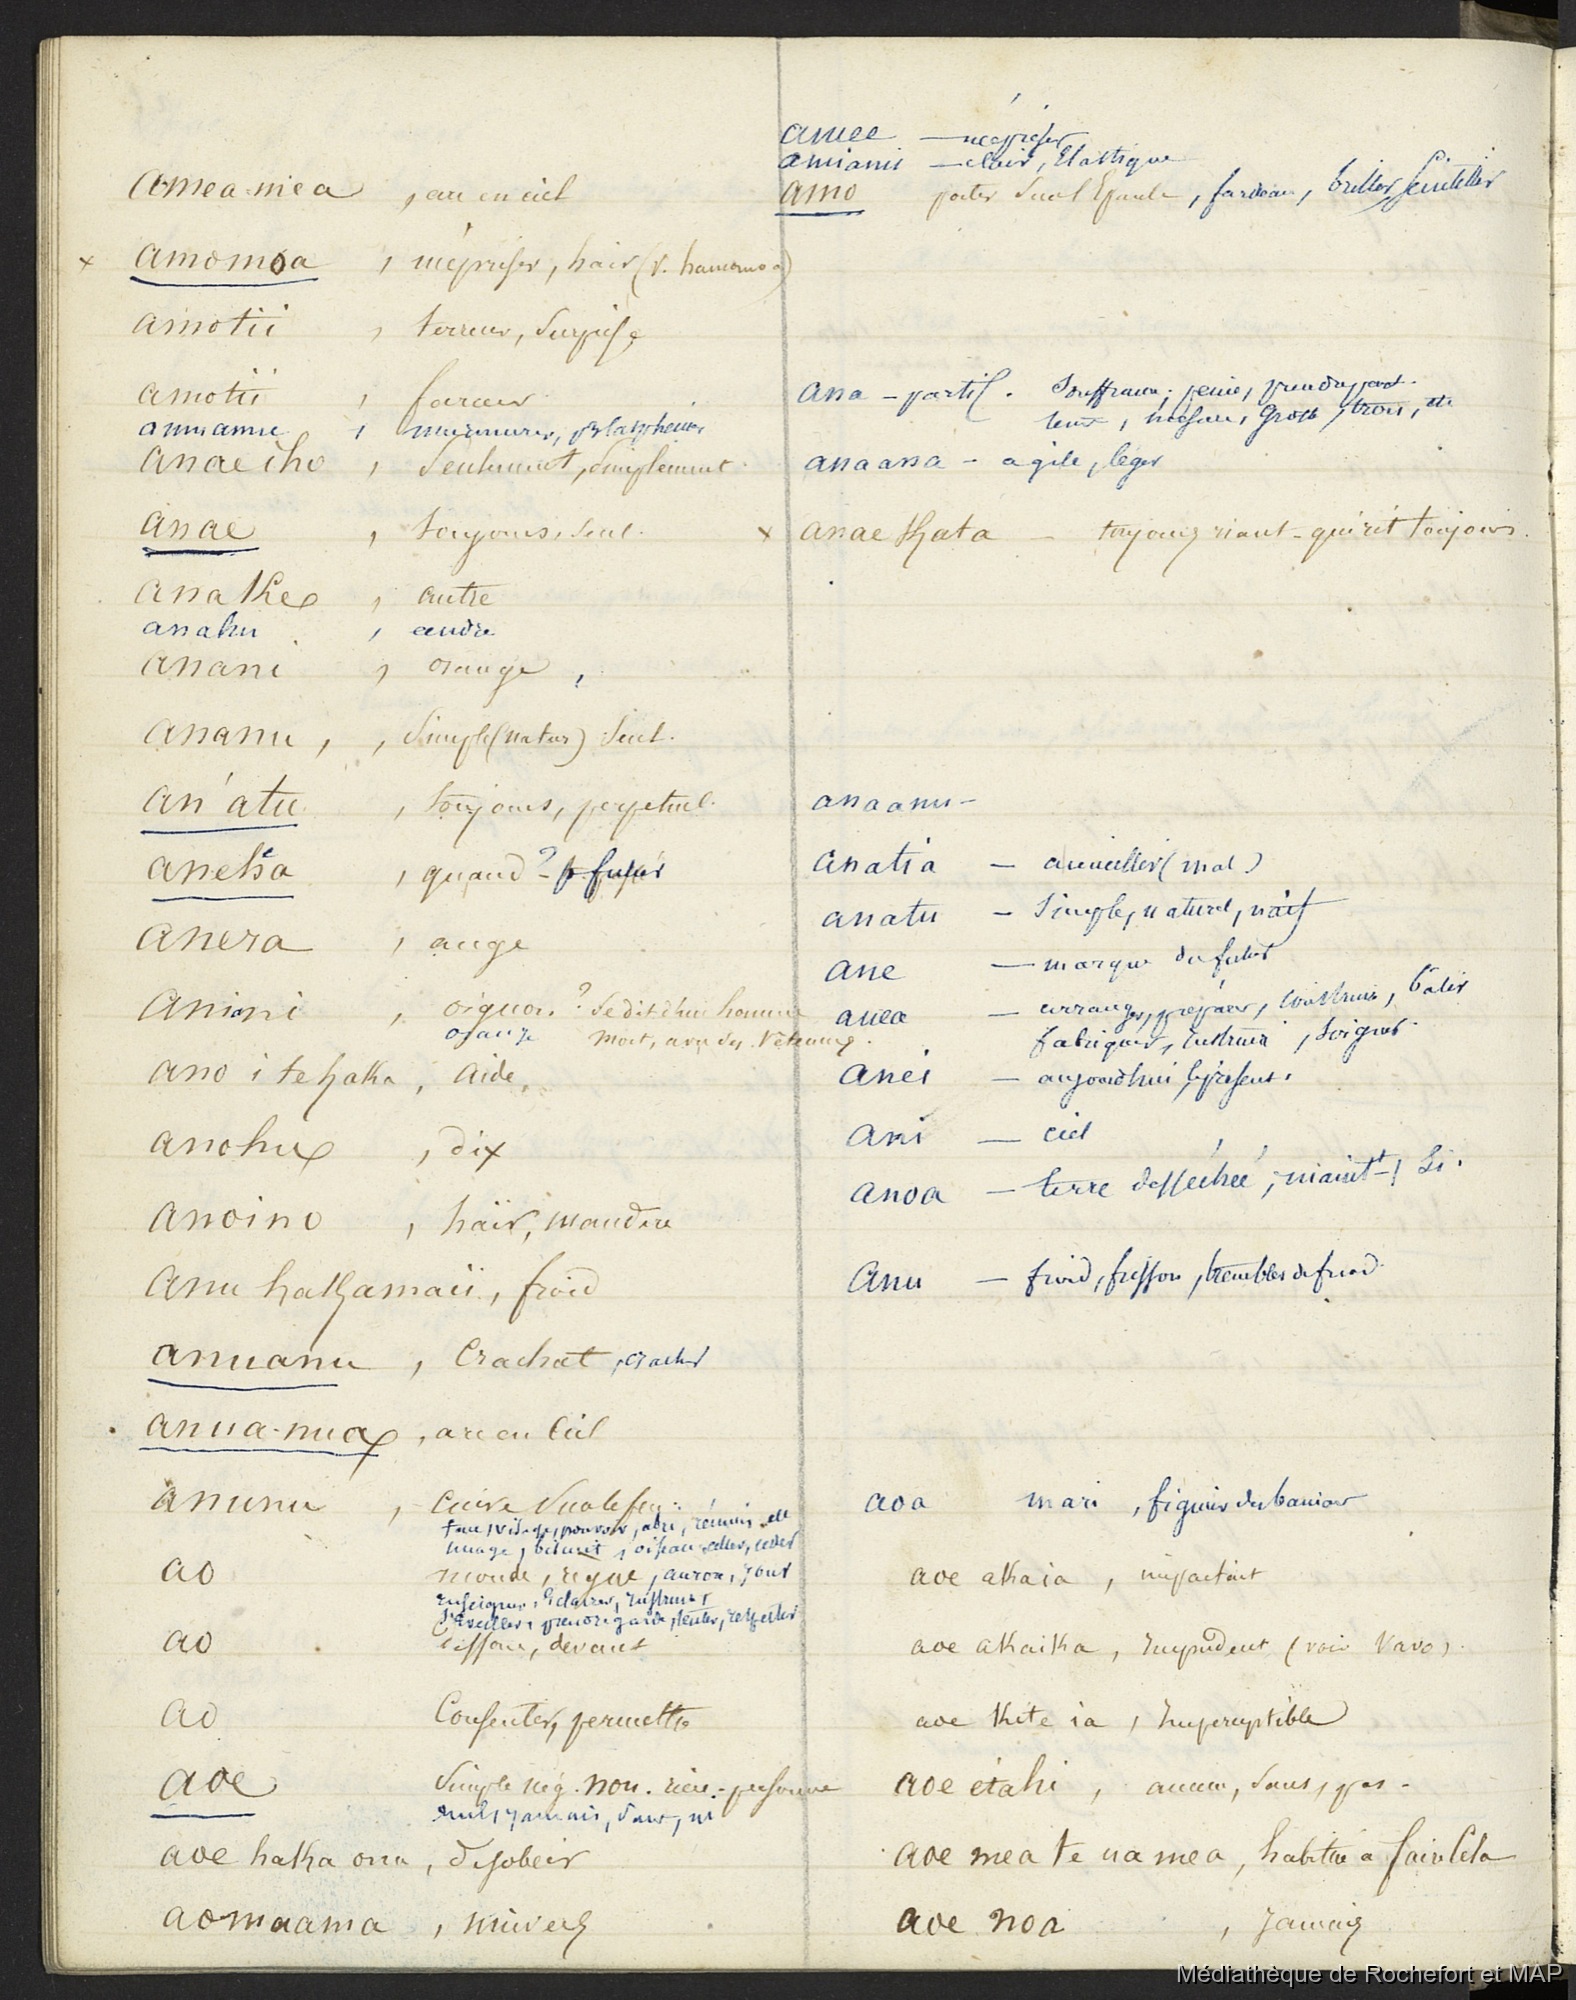 amea mea , arc en ciel
x amomoa , mépriser, haïr (v. hamomoa)
amotii , terreur, surprise
amotii , farceur
amuamu , murmurer, blasphémer
anaeiho , Seulement, simplement
anae , toujours, seul.
anake , autre
anahu , cendre
anani , orange ,
ananu , , Simple (natur) Seul.
an'atu , toujours, perpetuel.
aneha , quand ? - p. futur
anera , ange
animi , oignon ? Se dit d'un homme
orange mort, avec des vêtements.
ano i te haka , aide,
anohu , dix
anoino , haïr, maudire
anu hakamaii , froid
anuanu , Crachat , cracher
anua-nua , arc en Ciel
anunu , Cuire sur le feu.
face, visage, pouvoir, abri, réunir
nuage, , oiseau
ao monde, règne, aurore, jour
enseigner, éclairer, instruire
prendre garde, tenter, respecter
ao dessous, devant
ao Consentir, permettre
aoe Simple nég. non. rien. personne
nul, jamais, sans, ni
aoe haka ona , désobéir
aomaama , univers
amee — mépriser
amiami — clair, Elastique
amo porter sur l'Epaule , fardeau, briller, scintiller
ana - partic . Souffrance, peine, prendre part.
, grotte, trou,
anaana - agile, léger
x anae kata — toujours riant - qui rit toujours.
anaanu -
anatia — accueillir (mal)
anatu — Simple, naturel, naïf
ane — marque du futur
anea — arranger, préparer, construire, bâtir
fabriquer, instruire , soigner.
anei — aujourd'hui, le présent.
ani — ciel
anoa — terre desséchée ; maint^t, ! Si.
Anu — froid, frisson, trembler de froid
aoa mari , figuier des banians
aoe akaia , imparfait
aoe akaika , Impudent (voir vavo).
aoe kite ia , Imperceptible
aoe etahi , aucun, sans, pas -
aoe mea te na mea , habitué à faire Cela
aoe noa , Jamais
Médiathèque de Rochefort et MAP